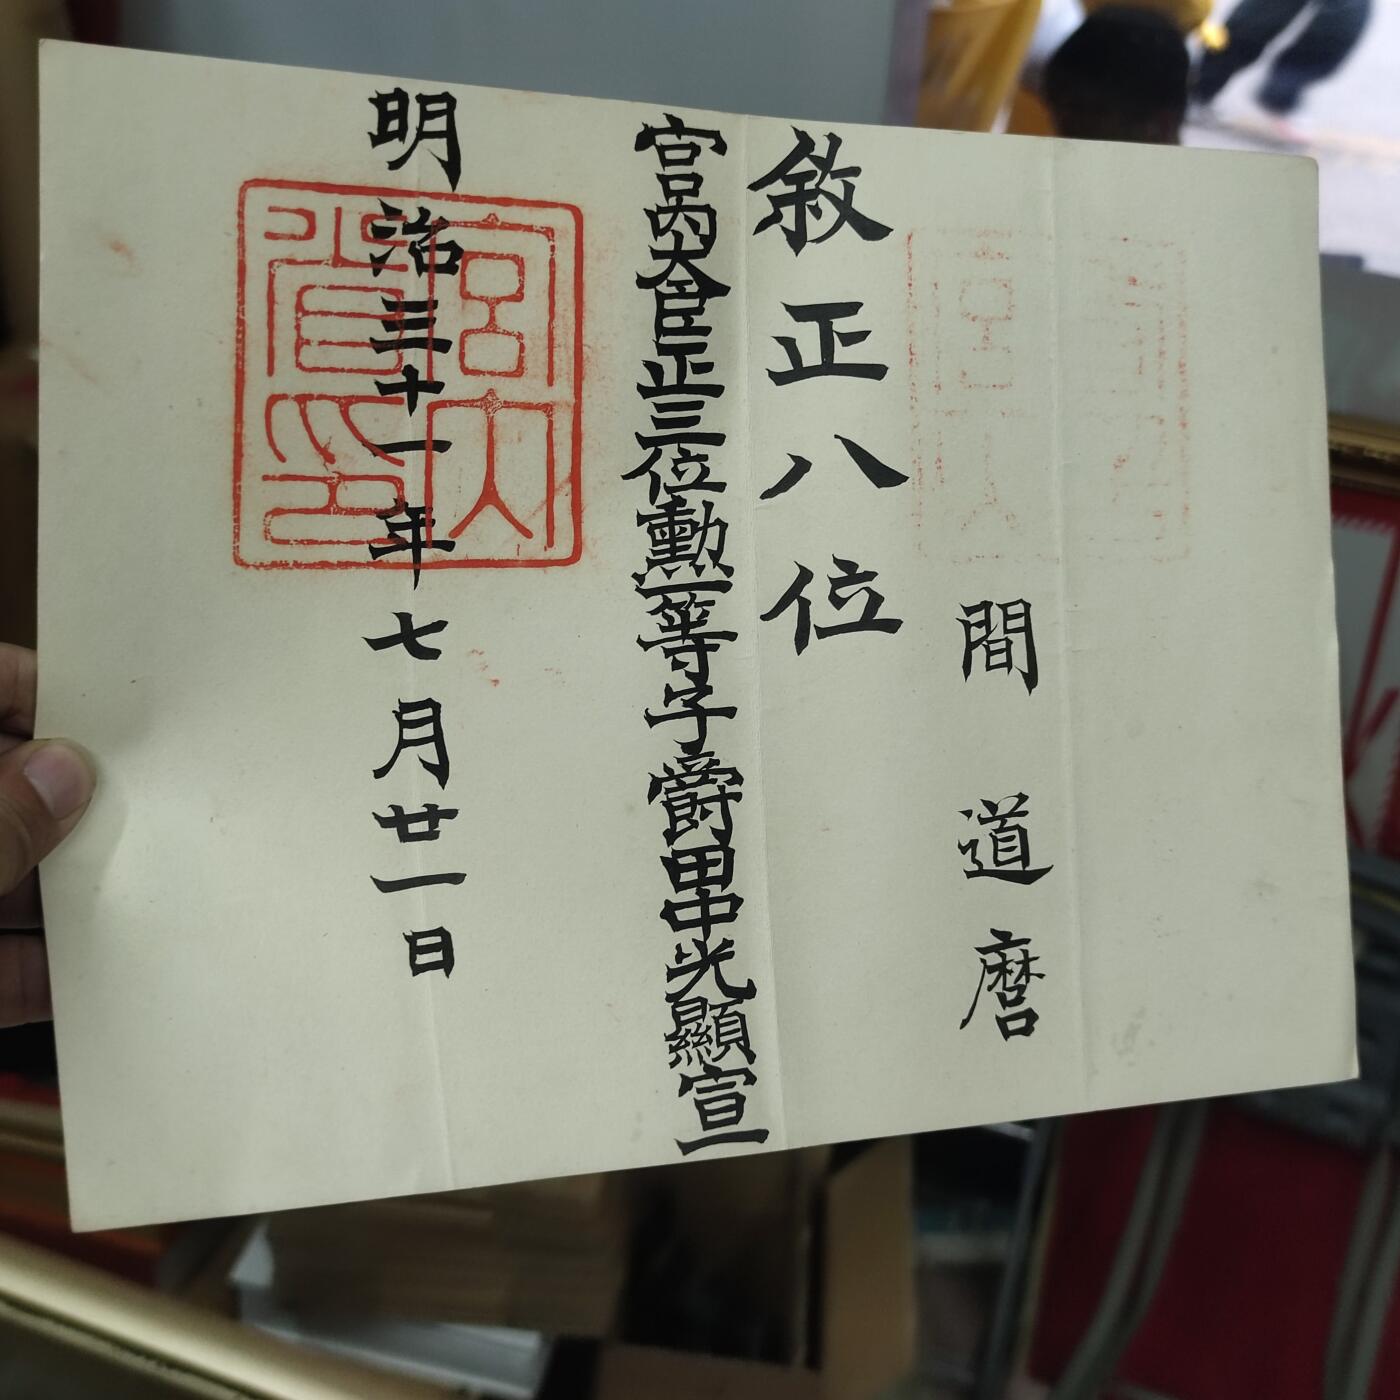 間道麿
敘正八位
宮内大臣正三位勳一等子爵田中光顯宣
明治三十一年七月廿一日
宮内省印